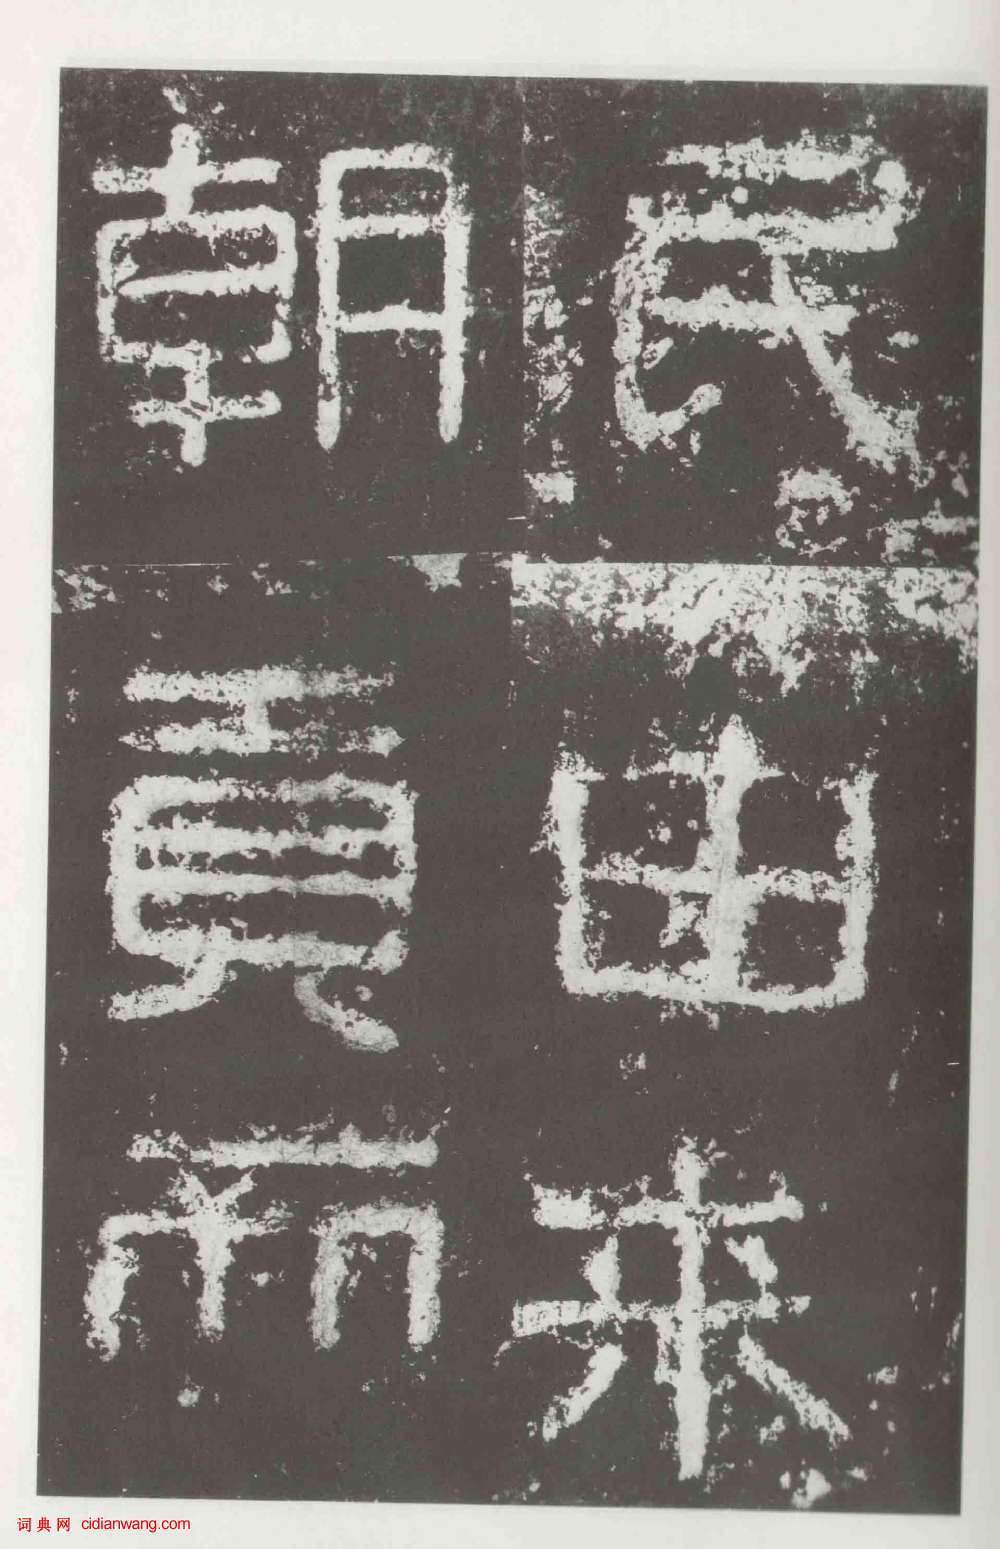 民由來
朝貢而
词典网 cidianwang.com